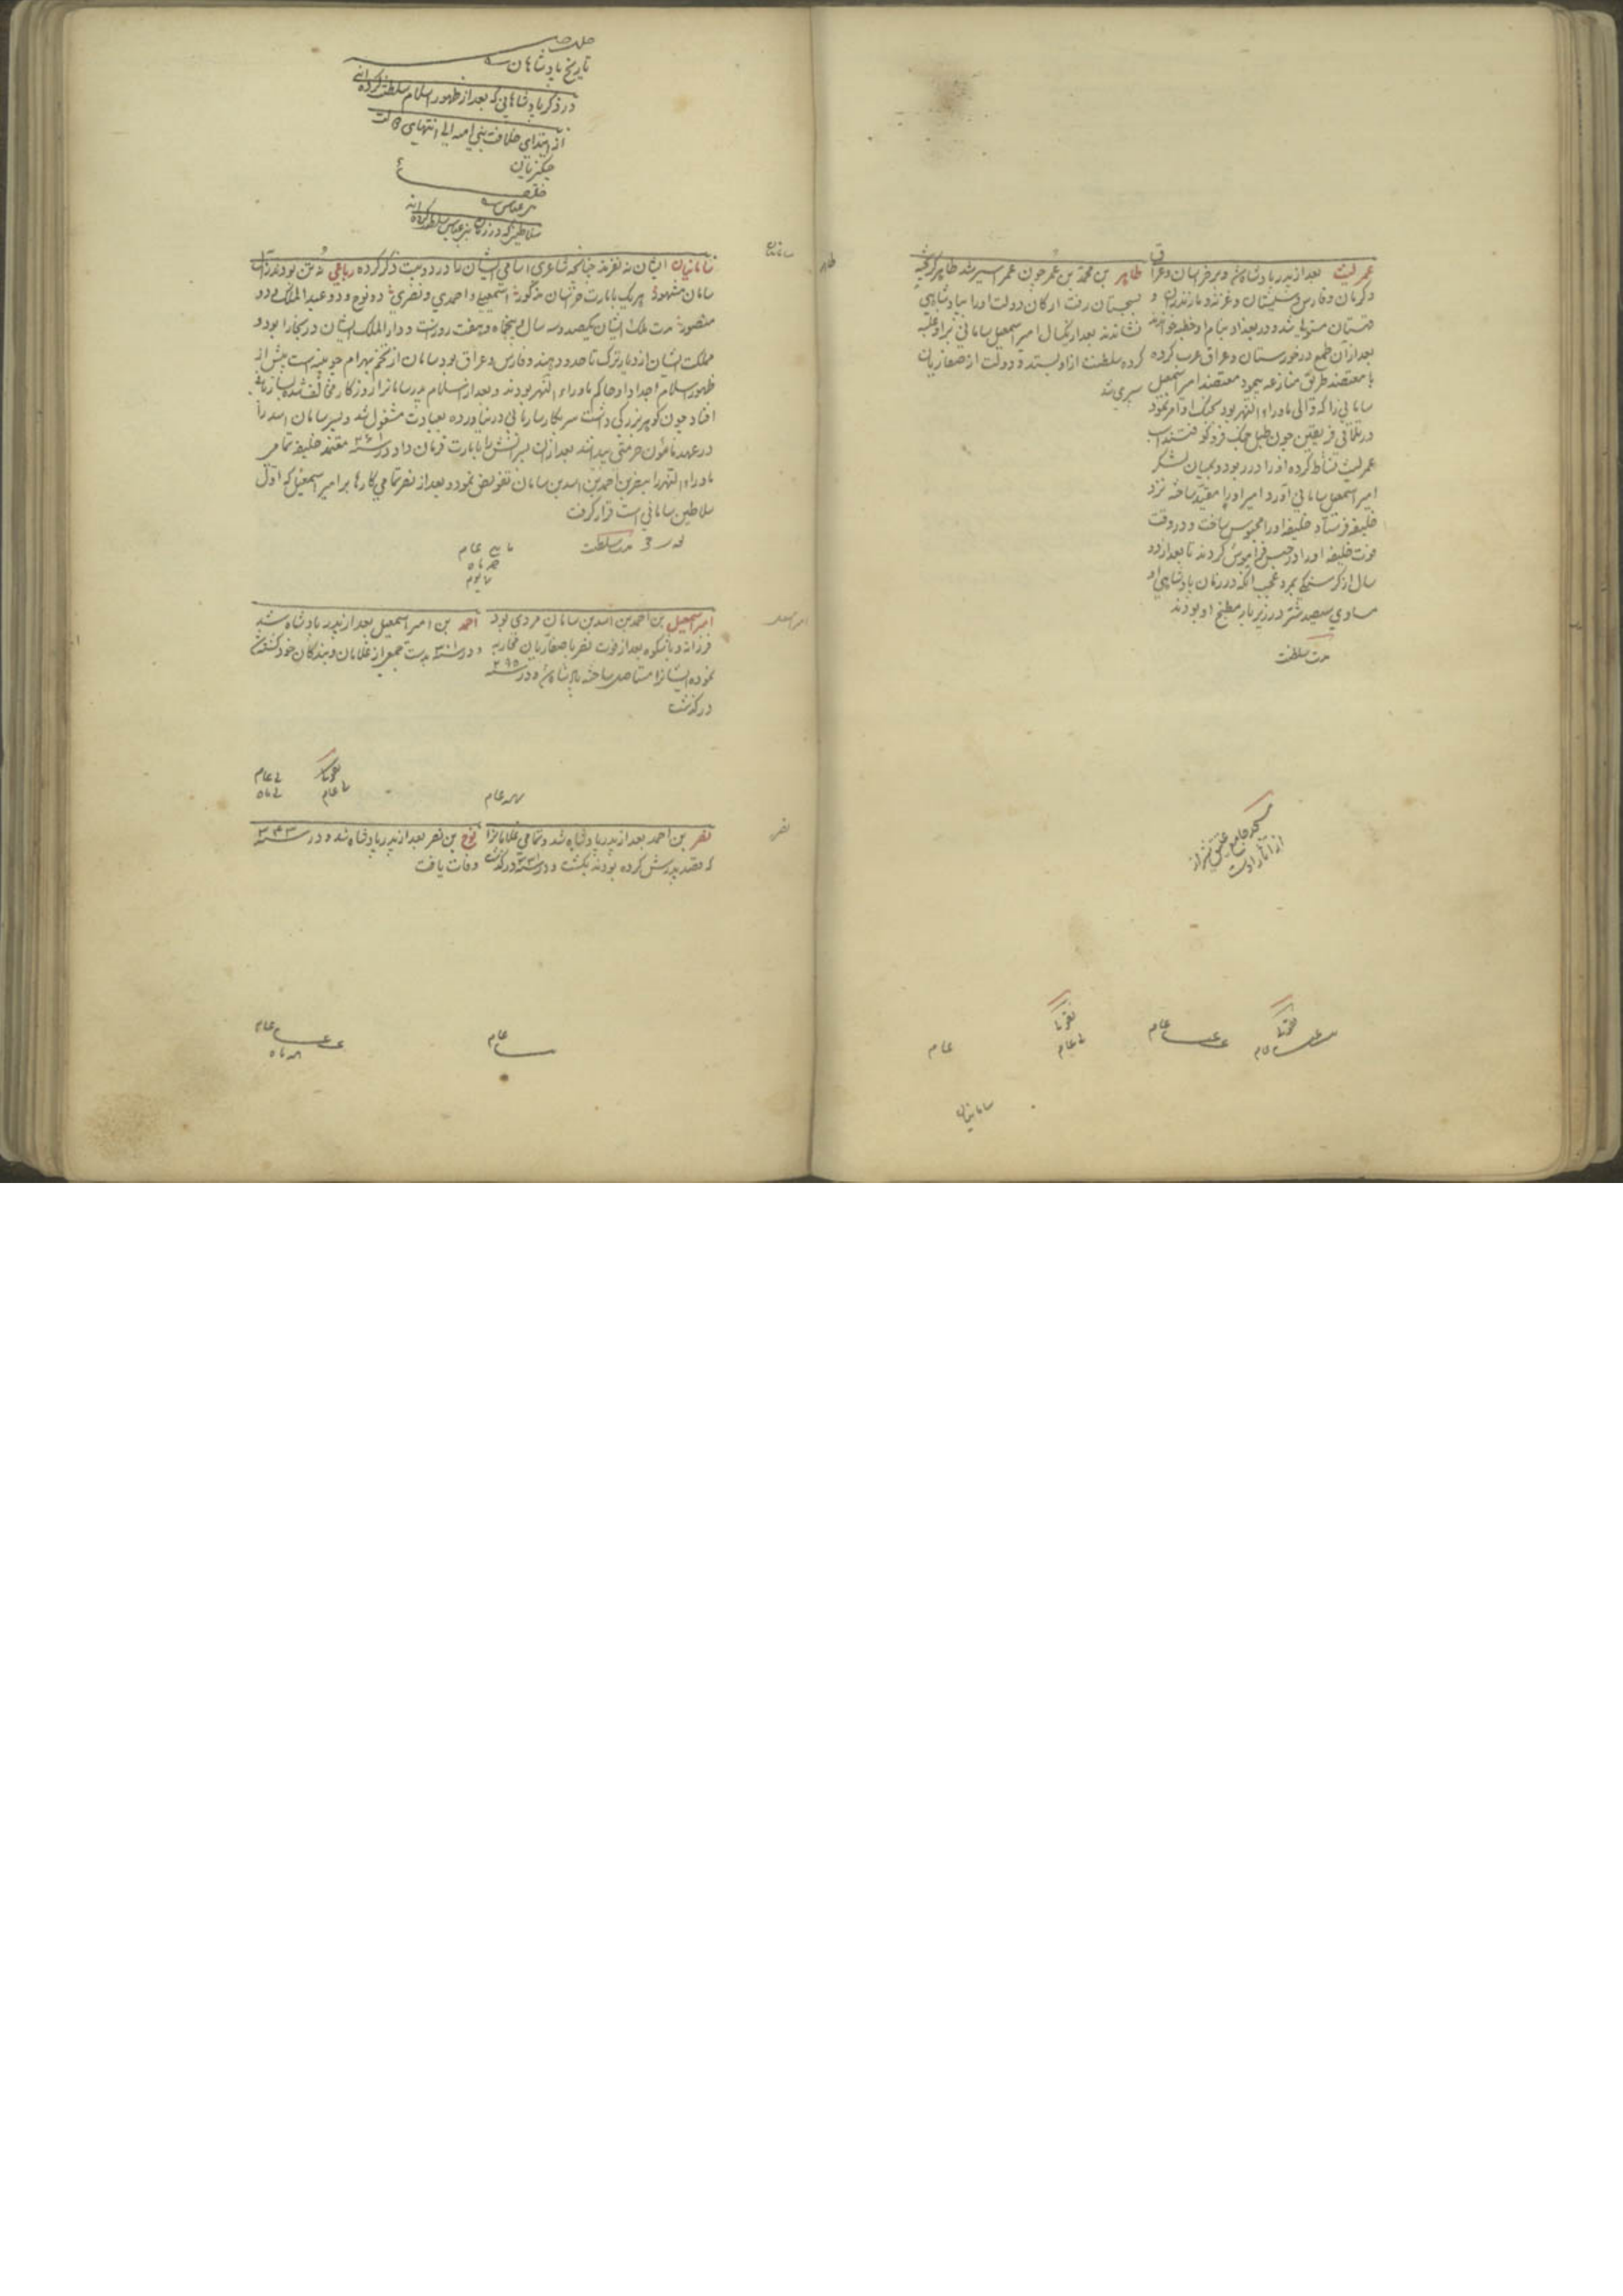 عمرلیث بعد از پدر پادشاه شد و بر خراسان و عراق
و کرمان و فارس و سیستان و غزنه و مازندران و
قهستان مستولی شد و در بغداد بنام او خطبه خواندند
بعد از آن طمع در خوزستان و عراق عرب کرده
با معتضد طریق منازعه پیمود معتضد امیر اسمعیل
سامانی را که والی ماوراءالنهر بود بجنگ او امر نمود
در تلاقی فریقین چون طبل جنگ فرو کوفتند اسب
عمرلیث نشاط کرده او را در ربود و بمیان لشکر
امیر اسمعیل سامانی آورد امیر او را مقید ساخته نزد
خلیفه فرستاد خلیفه او را محبوس ساخت و در وقت
فوت خلیفه او را در حبس فراموش کردند تا بعد از دو
سال از گرسنگی بمرد عجب آنکه در زمان پادشاهی او
مساوی سیصد شتر در زیر بار مطبخ او بودند
مدت سلطنت
طاهر بن محمد بن عمر چون عمر اسیر شد طاهر گریخته
بسجستان رفت ارکان دولت او را بپادشاهی
نشاندند بعد از یکسال امیر اسمعیل سامانی بر او غلبه
کرده سلطنت از او بستد و دولت از صفاریان
سپری شد
مسجد جامع عتیق شیراز
از آثار اوست
تقریبا
عام
عام
تقریبا
عام
عام
سامانیان
طاهر
سامانیان
تاریخ پادشاهان
در ذکر پادشاهانی که بعد از ظهور اسلام سلطنت کرده اند
از ابتدای خلافت بنی امیه الی انتهای دولت
چنگیزیان
بنی عباس
سلاطین که در زمان بنی عباس سلطنت کرده اند
سامانیان ایشان نه نفرند چنانچه شاعری اسامی ایشان را در دو بیت ذکر کرده رباعی نه تن بودند ز آل
سامان مشهور هر یک بامارت خراسان مذکور اسمعیلی و احمدی و نصری دو نوح و دو عبدالملک و دو
منصور مدت ملک ایشان یکصد و سه سال و پنجاه و هفت روز است و دارالملک ایشان در بخارا بود و
مملکت ایشان از دیار ترک تا حدود هند و فارس و عراق بود سامان از تخم بهرام چوبینه است پیش از
ظهور اسلام اجداد او حاکم ماوراءالنهر بودند و بعد از اسلام پدر سامان را روزگار مخالف شده
افتاد چون گوهر بزرگی داشت سر بکار ساربانی در نیاورده بعبادت مشغول شد و پسر سامان اسد را
در عهد مامون حرمتی پیدا شد بعد از آن پسرانش را بامارت فرمان داد و در سنه ۲۶۱ معتمد خلیفه تمامی
ماوراءالنهر را بنصر بن احمد بن اسد بن سامان تفویض نمود و بعد از نصر تمامی کارها بر امیر اسمعیل که اول
سلاطین سامانی است قرار گرفت
مدت سلطنت
عام
یوم
امیر اسمعیل بن احمد بن اسد بن سامان مردی بود
فرزانه و باشکوه بعد از فوت نصر با صفاریان محاربه
نموده ایشانرا مستاصل ساخته پادشاه شد و در سنه ۲۹۵
در گذشت
عام
احمد بن امیر اسمعیل بعد از پدر پادشاه شد
و در سنه ۳۰۱ بدست جمعی از غلامان و بندگان خود کشته گشت
تقریبا
عام
عام
ماه
نصر
نصر بن احمد بعد از پدر پادشاه شد و تمامی غلامانرا
که قصد پدرش کرده بودند بکشت و در سنه در گذشت
عام
نوح بن نصر بعد از پدر پادشاه شد و در سنه ۳۴۳
وفات یافت
عام
ماه